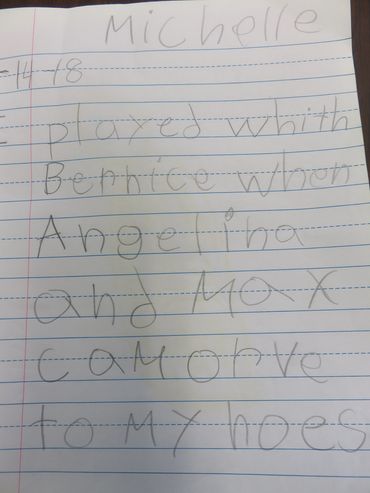 Michelle
-14-18
I played whith
Bernice when
Angelina
and Max
cam orve
to My hoes